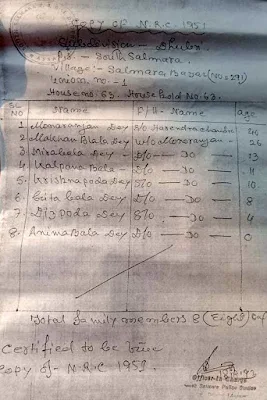 COPY OF N.R.C 1951
Subdivision - Dhubri
P.S - South Salmara,
Village:- Salmara, Bazar (No:291)
Union no. -1
House no. 63. House hold No. 63.
SL NO Name F/H - Name age
1. Monaranjan Dey S/o Harendra
2. Makhan Bala Dey W/o Monoranjan - 26
3. Nirabala Dey - D/o — Do — 13
4. Kalpana Bala D/o — Do — 11
5. Krishnapoda Dey S/o — Do — 10
6. Gita Bala Dey D/o — Do — 8
7. Poda Dey S/o — Do — 4
8. Anima Bala Dey D/o — Do — 0
Total family members 8 (Eight)
Certified to be true
Copy of N.R.C 1951.
Officer-in-Charge
South Salmara Police Station